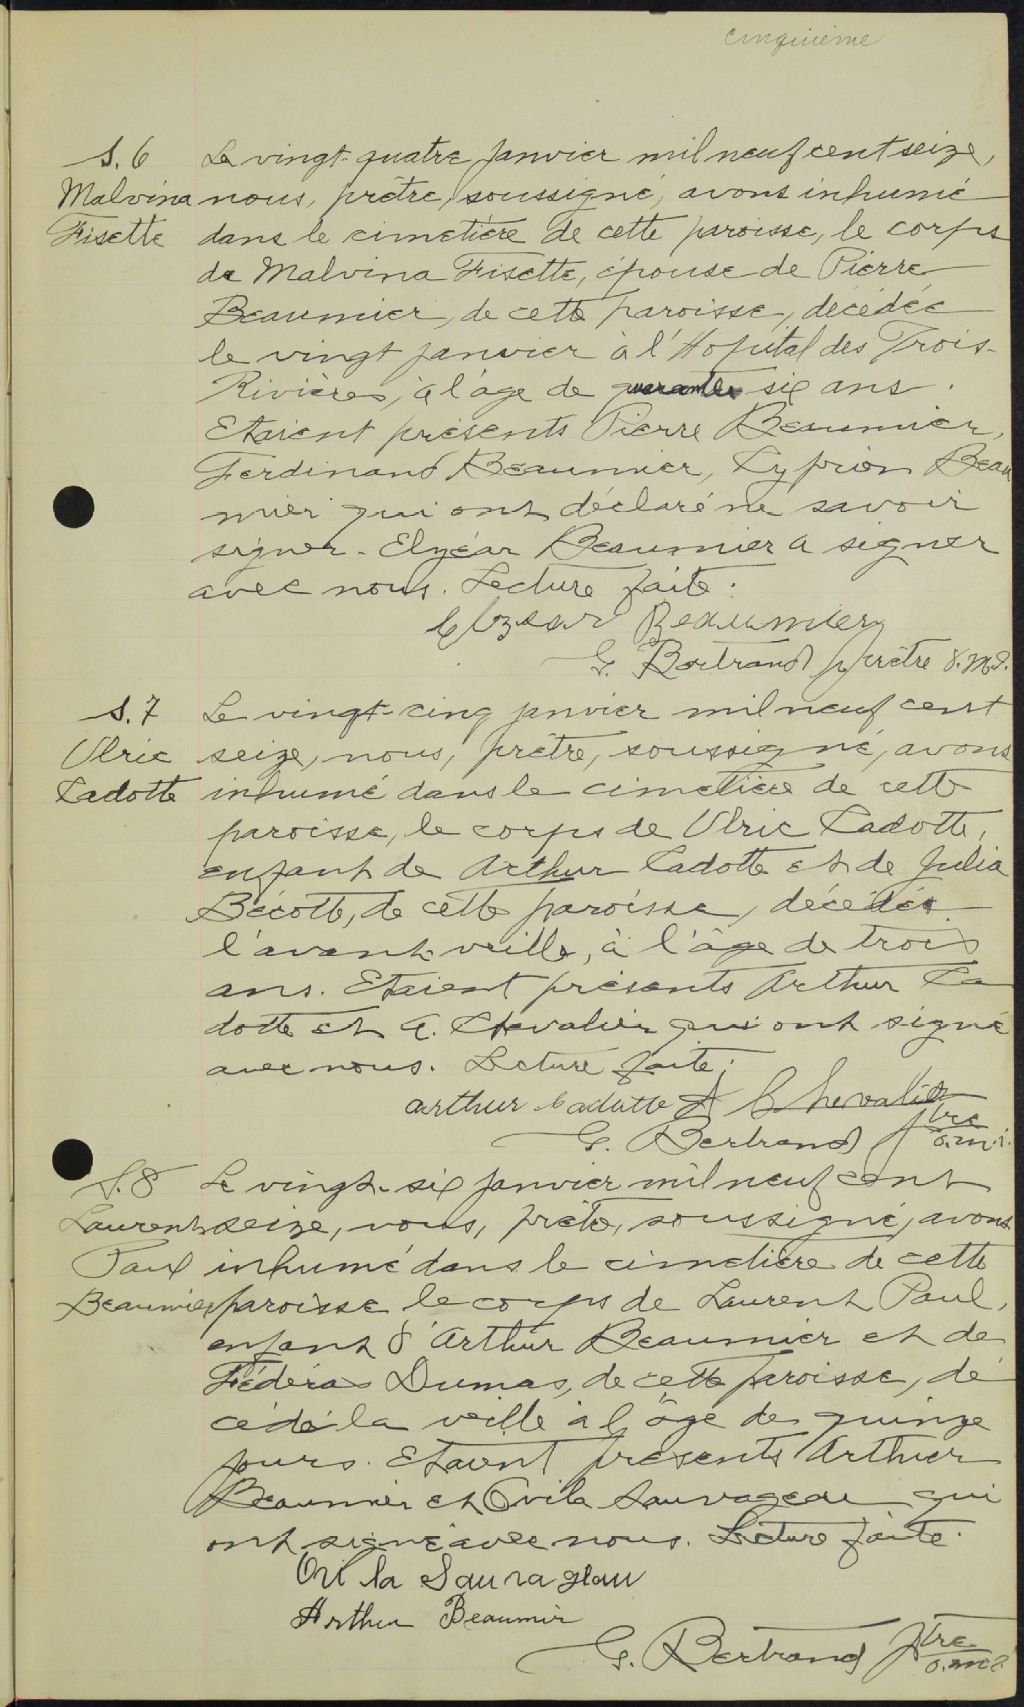 cinquième
S. 6 Le vingt-quatre janvier mil neuf cent seize,
Malvina nous, prêtre, soussigné, avons inhumé
Fisette dans le cimetière de cette paroisse, le corps
de Malvina Fisette, épouse de Pierre
Beaumier, de cette paroisse, décédée
le vingt janvier à l'Hôpital des Trois-
Rivières, à l'âge de quarante six ans.
Etaient présents Pierre Beaumier,
Ferdinand Beaumier, Cyprien Beau
mier qui ont déclaré ne savoir
signer. Elzéar Beaumier a signer
avec nous. Lecture faite.
Elzear Beaumier
G. Bertrand prêtre
S. 7 Le vingt-cinq janvier mil neuf cent
Ulric seize, nous, prêtre, soussigné, avons
Cadotte inhumé dans le cimetière de cette
paroisse, le corps de Ulric Cadotte,
enfant de Arthur Cadotte et de Julia
Bécotte, de cette paroisse, décédée
l'avant-veille, à l'âge de trois
ans. Etaient présents Arthur Ca
dotte et A. Chevalier qui ont signé
avec nous. Lecture faite.
arthur Cadotte A Chevalier
G. Bertrand ptre
S. 8 Le vingt-six janvier mil neuf cent
Laurent seize, nous, prêtre, soussigné, avons
Paul inhumé dans le cimetière de cette
Beaumier paroisse le corps de Laurent Paul,
enfant d'Arthur Beaumier et de
Fédéra Dumas, de cette paroisse, dé
cédé la veille à l'âge de quinze
jours. Etaient présents Arthur
Beaumier et Ovila Sauvageau qui
ont signé avec nous. Lecture faite.
Ovila Sauvageau
Arthur Beaumier
G. Bertrand ptre